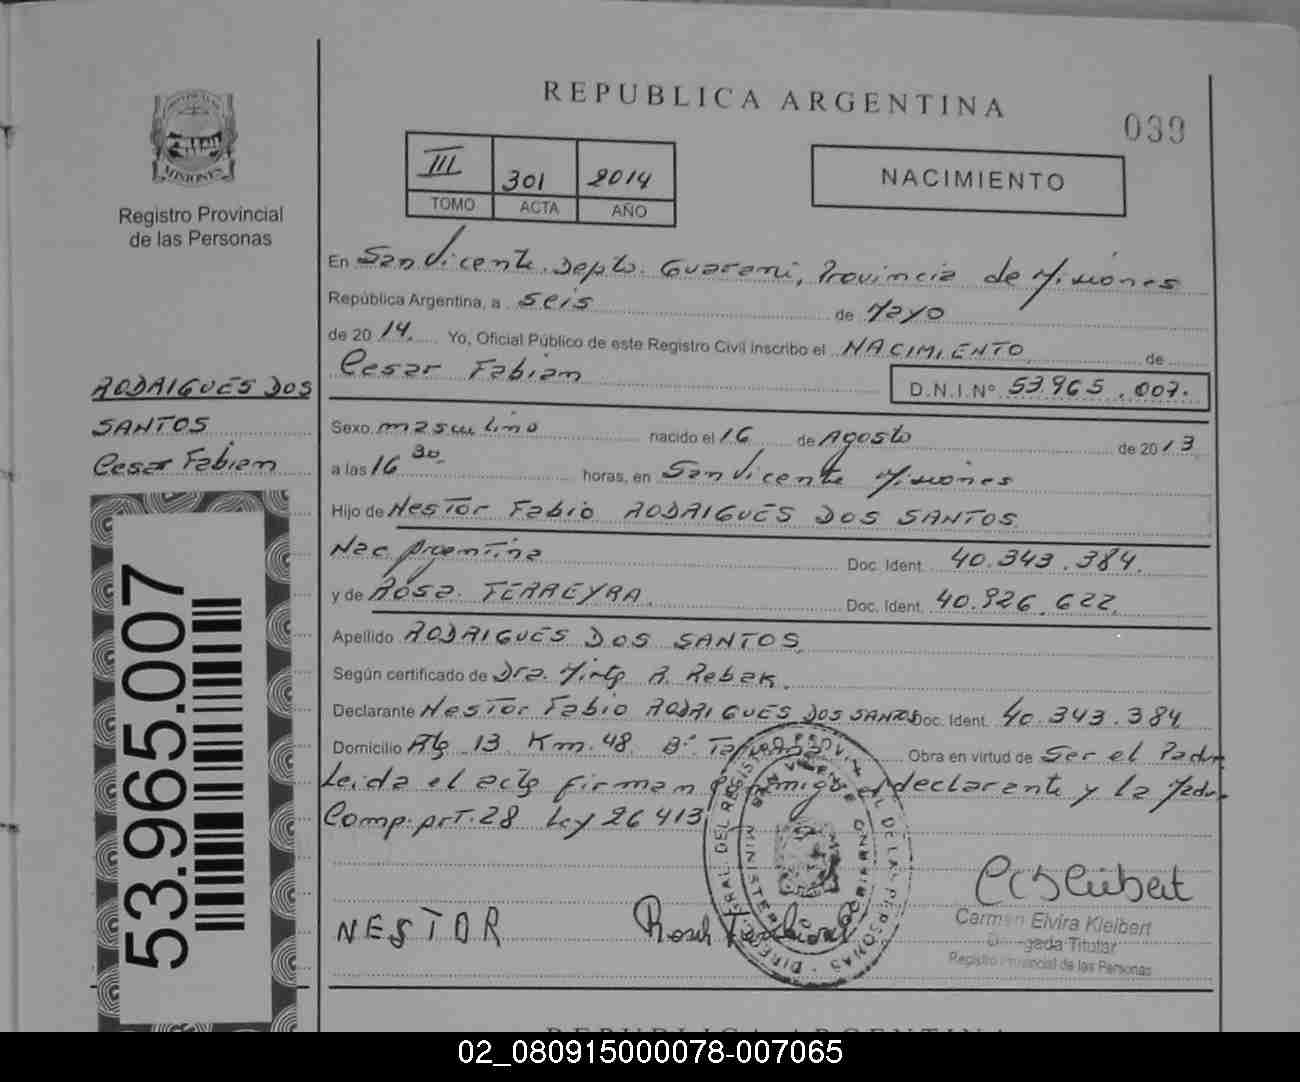 REPUBLICA ARGENTINA
039
MISIONES
Registro Provincial
de las Personas
III 301 2014
TOMO ACTA AÑO
NACIMIENTO
En San Vicente. Depto. Guarani, Provincia de Misiones
República Argentina, a seis de Mayo
de 2014. Yo, Oficial Público de este Registro Civil inscribo el NACIMIENTO de
Cesar Fabian D.N.I.Nº 53.965.007.
RODRIGUES DOS
SANTOS
Cesar Fabian
53.965.007
Sexo masculino nacido el 16 de Agosto de 2013
a las 16 30 horas, en San Vicente Misiones
Hijo de Nestor Fabio RODRIGUES DOS SANTOS
Nac. Argentina Doc. Ident. 40.343.384.
y de Rosa FERREYRA. Doc. Ident. 40.926.622
Apellido RODRIGUES DOS SANTOS
Según certificado de Dra. R. Rebak.
Declarante Nestor Fabio RODRIGUES DOS SANTOS Doc. Ident. 40.343.384
Domicilio 13 Km. 48. Bº Obra en virtud de Ser el Padre
Leida el acta firman conmigo el declarante y la Madre
Comp. art. 28 Ley 26413
NESTOR
Carmen Elvira Kleibert
Delegada Titular
Registro Provincial de las Personas
REPUBLICA ARGENTINA
02_080915000078-007065